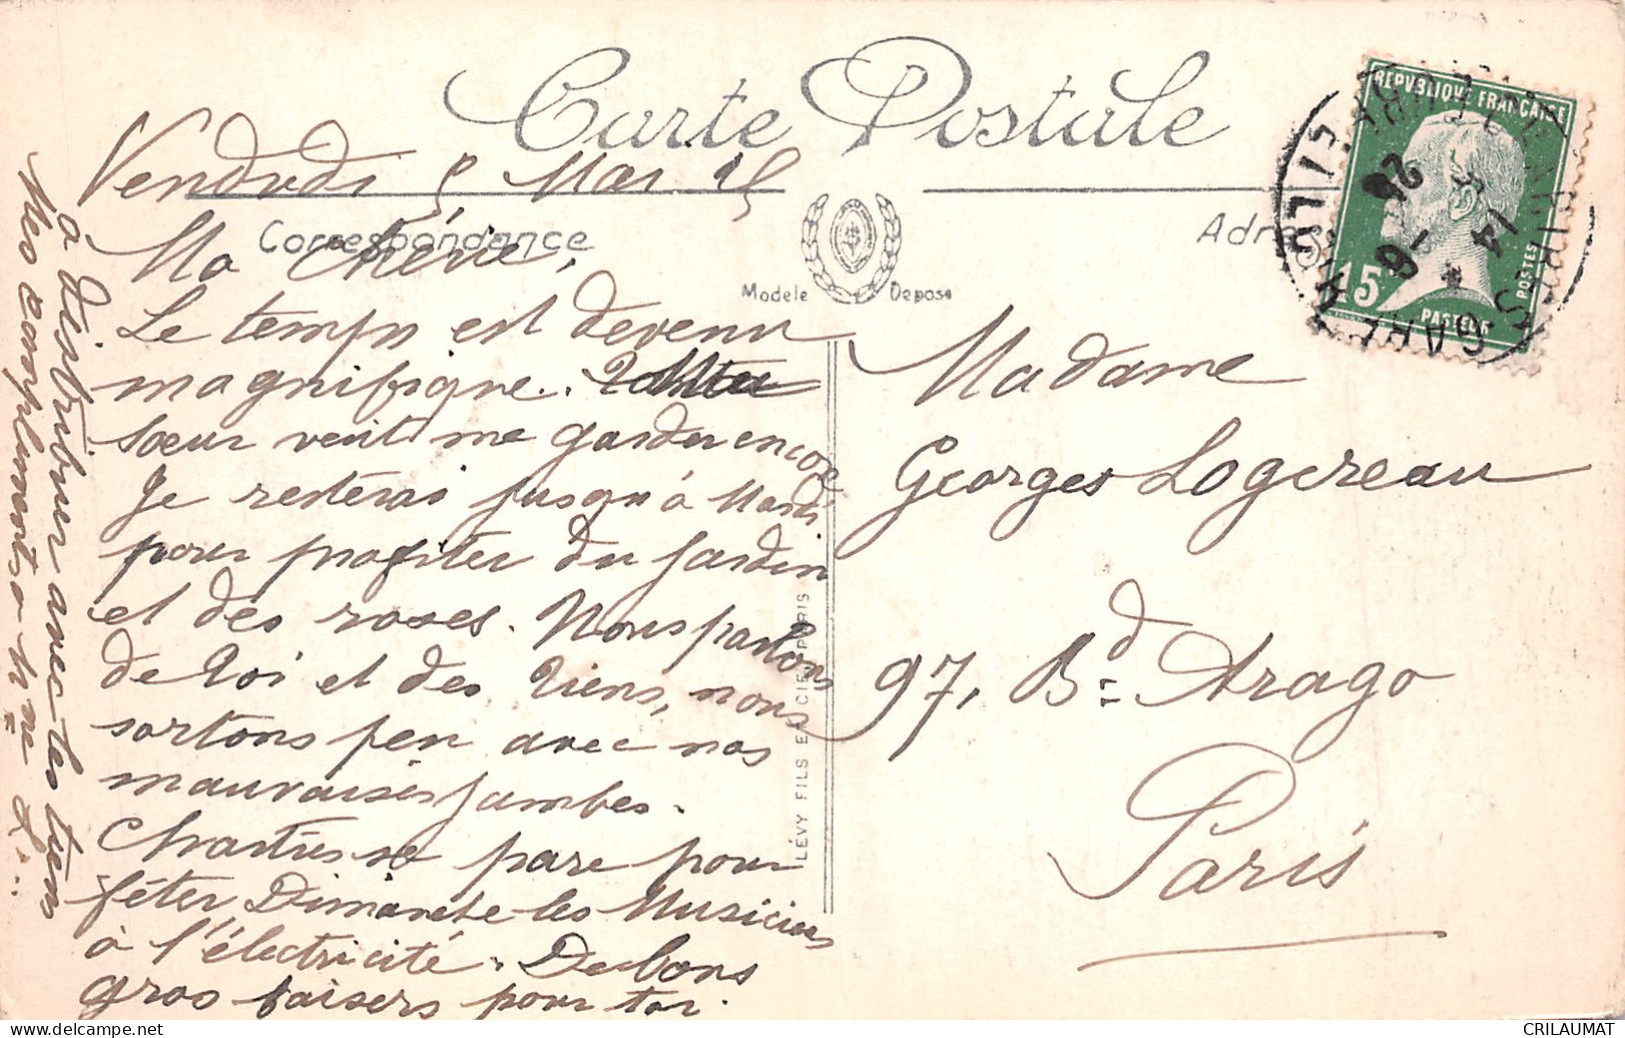 Carte Postale
Vendredi 5 Mai 25
Correspondance
Adr
Modele Depose
Ma Chérie,
Le temps est devenu
magnifique.
sœur veut me garder encore
Je resterai jusqu'à Mardi
pour profiter du jardin
et des roses. Nous parlons
de toi et des tiens, nous
sortons peu avec nos
mauvaises jambes.
Chartres se pare pour
fêter Dimanche les Musiciens
à l'électricité. De bons
gros baisers pour toi.
à distribuer avec les tiens
Mes compliments à
Madame
Georges Logereau
97, Bd Arago
Paris
LÉVY FILS ET CIE PARIS
REPVBLIQUE FRANCAISE
15
POSTES
PASTEUR
GARE
14
26
6
CRILAUMAT